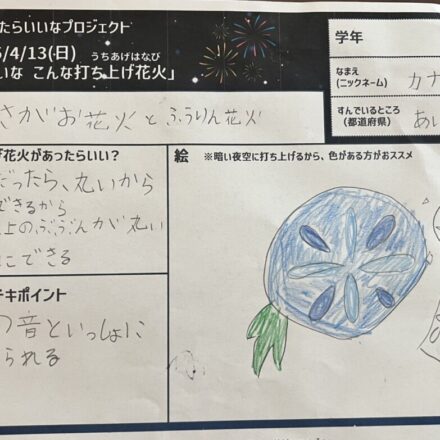 たらいいなプロジェクト
5/4/13(日)
うちあげはなび
いな こんな打ち上げ花火」
学年
なまえ
(ニックネーム)
カナ
すんでいるところ
(都道府県)
あい
さがお花火とふうりん花火
花火があったらいい?
絵 ※暗い夜空に打ち上げるから、色がある方がおススメ
だったら、丸いから
できるから
上のぶぶんが丸い
こできる
テキポイント
の音といっしょに
られる